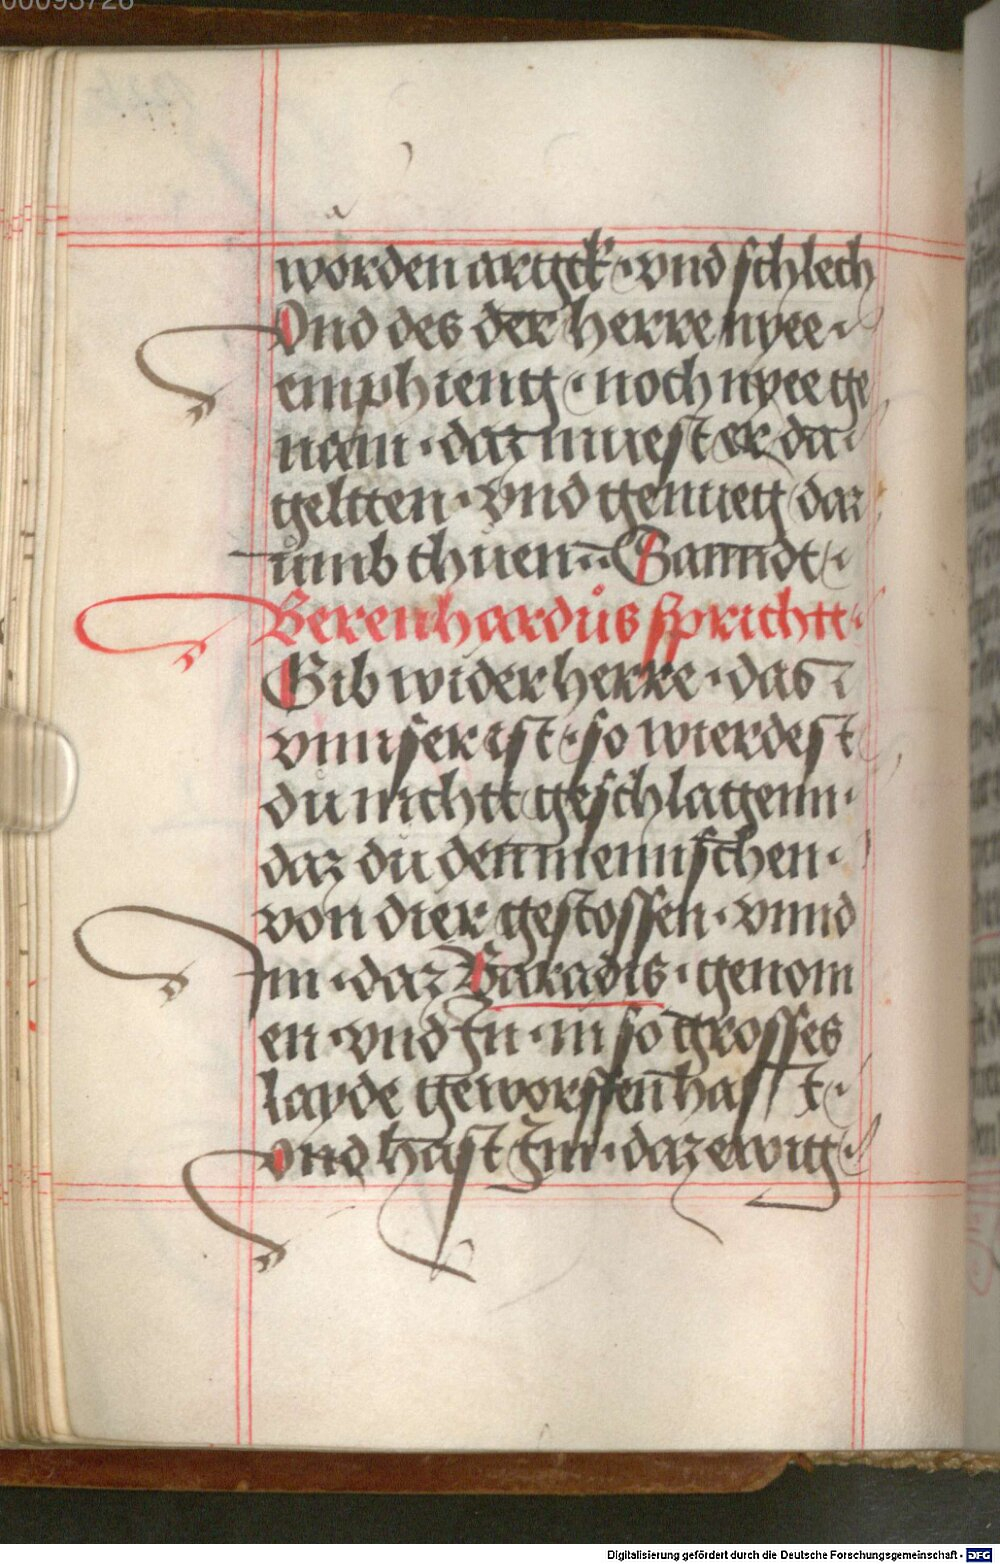 00093726
worden argck · vnd schlech
Vnd des der herre nyee ·
emphieng · noch nyee ge
nam · daz muest er da ·
geltten · vnd genueg daz
umb thuen :· Sanndt ·
Berenhardus sprichtt ·
Gib wider herre · das
vnnser ist · so wierdest
du nichtt geschlagenn ·
daz du den mennschen ·
von dier gestossen · vnnd
Im · daz Paradis · genom
en · vnd In · in so grosses
layde geworffen hasst ·
vnd hast Im · daz ewig ·
Digitalisierung gefördert durch die Deutsche Forschungsgemeinschaft - DFG